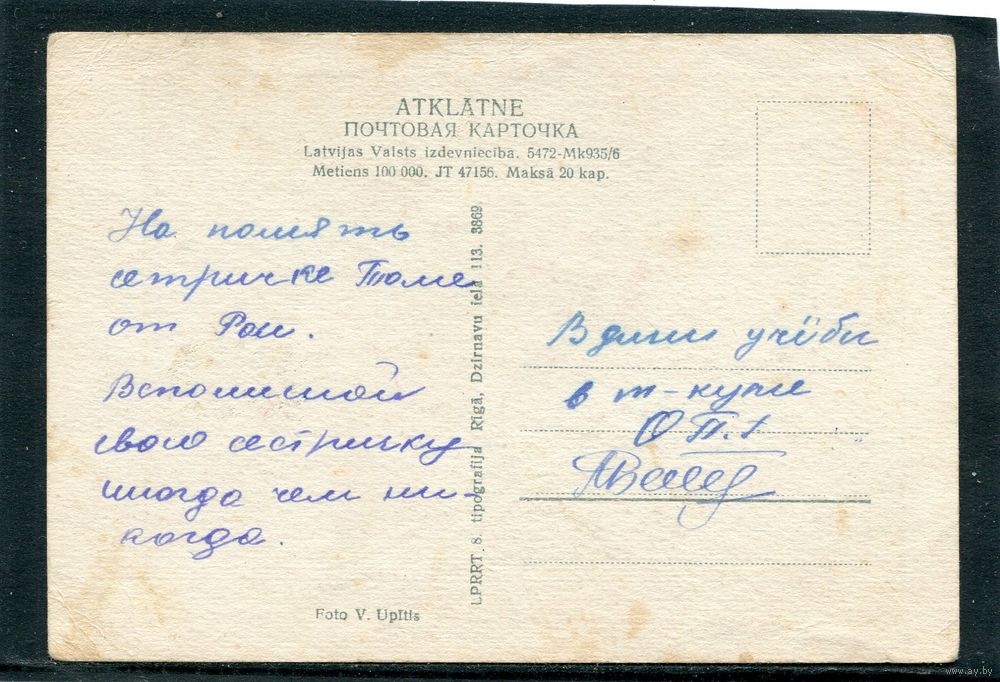 ATKLĀTNE
ПОЧТОВАЯ КАРТОЧКА
Latvijas Valsts izdevniecība. 5472-Mk935/6
Metiens 100 000. JT 47156. Maksā 20 kap.
На помять
сетричке Томе
от Раи.
Вспоминай
свою сестричку
иногда чем ни-
когда.
Foto V. Upītis
LPRRT. 8. tipografija Rīgā, Dzirnavu ielā 113. 3869
В дни учёбы
в т-куме
О.П.Х
www.ay.by